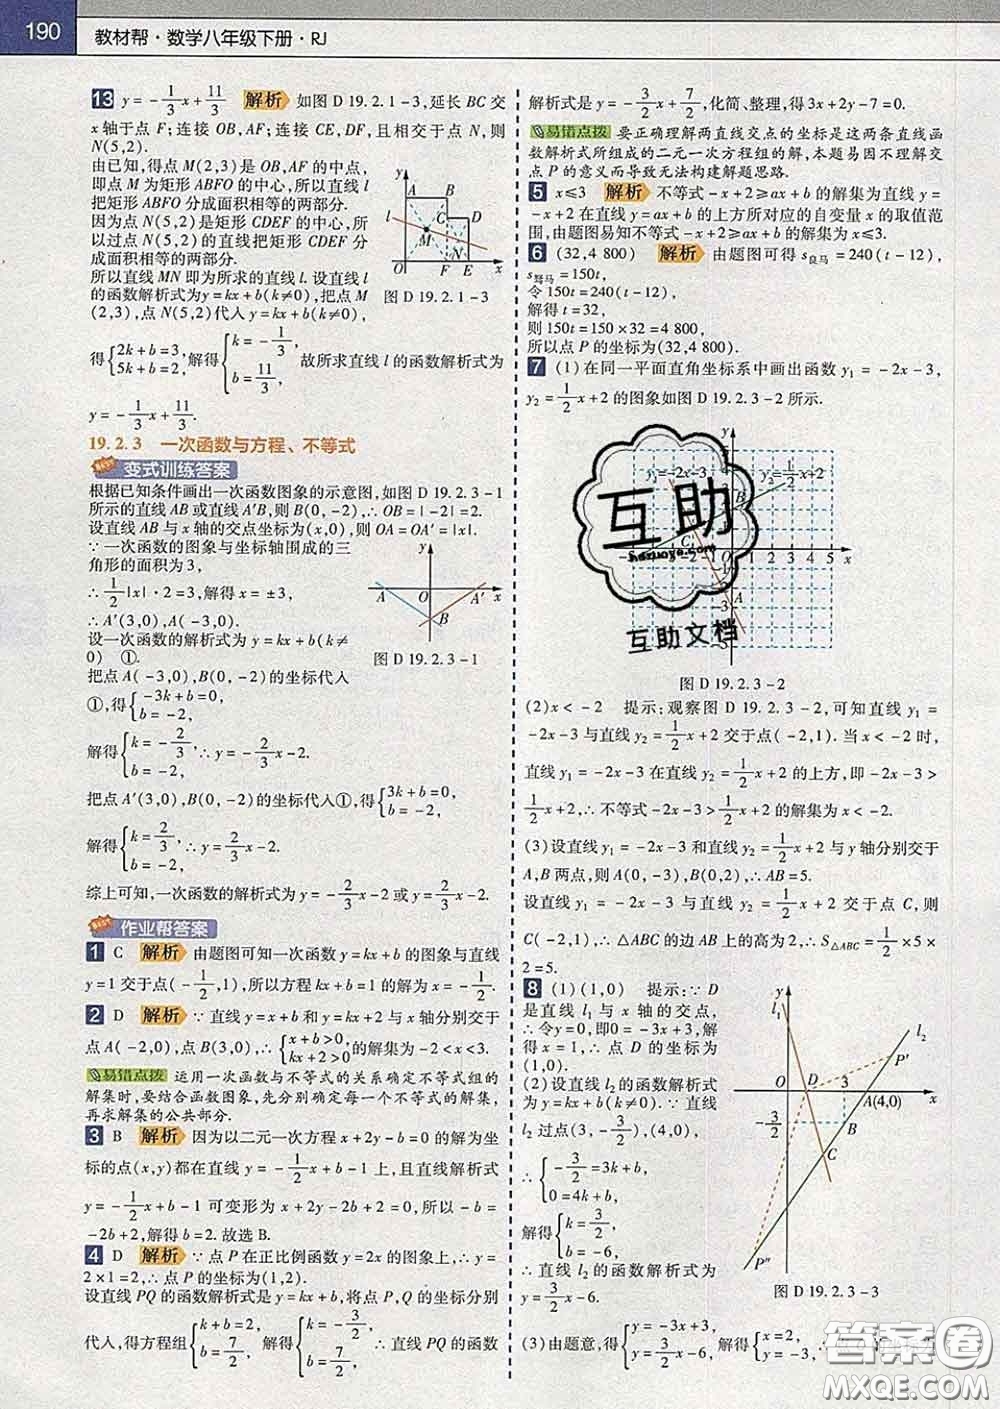 190
教材帮·数学八年级下册·RJ
13 y=-1/3x+11/3 解析 如图 D 19.2.1-3,延长 BC 交
x 轴于点 F;连接 OB,AF;连接 CE,DF,且相交于点 N,则
N(5,2).
由已知,得点 M(2,3)是 OB,AF 的中点,
即点 M 为矩形 ABFO 的中心,所以直线 l
把矩形 ABFO 分成面积相等的两部分.
因为点 N(5,2)是矩形 CDEF 的中心,所以
过点 N(5,2)的直线把矩形 CDEF 分
成面积相等的两部分.
所以直线 MN 即为所求的直线 l. 设直线 l
的函数解析式为 y=kx+b(k≠0),把点 M
(2,3),点 N(5,2)代入 y=kx+b(k≠0),
y
A
B
l
C
D
M
N
O
F
E
x
图 D 19.2.1-3
得{2k+b=3, 5k+b=2, 解得{k=-1/3, b=11/3, 故所求直线 l 的函数解析式为
y=-1/3x+11/3.
19.2.3 一次函数与方程、不等式
变式训练答案
根据已知条件画出一次函数图象的示意图,如图 D 19.2.3-1
所示的直线 AB 或直线 A′B,则 B(0,-2),∴OB=|-2|=2.
设直线 AB 与 x 轴的交点坐标为(x,0),则 OA=OA′=|x|.
∵一次函数的图象与坐标轴围成的三
角形的面积为 3,
∴1/2|x|·2=3,解得 x=±3,
∴A′(3,0),A(-3,0).
设一次函数的解析式为 y=kx+b(k≠
0) ①.
y
A
O
A′
x
B
图 D 19.2.3-1
把点 A(-3,0),B(0,-2)的坐标代入
①,得{-3k+b=0, b=-2,
解得{k=-2/3, b=-2, ∴y=-2/3x-2.
把点 A′(3,0),B(0,-2)的坐标代入①,得{3k+b=0, b=-2,
解得{k=2/3, b=-2, ∴y=2/3x-2.
综上可知,一次函数的解析式为 y=-2/3x-2 或 y=2/3x-2.
作业帮答案
1 C 解析 由题图可知一次函数 y=kx+b 的图象与直线
y=1 交于点(-1/2,1),所以方程 kx+b=1 的解为 x=-1/2.
2 D 解析 ∵直线 y=x+b 和 y=kx+2 与 x 轴分别交于
点 A(-2,0),点 B(3,0),∴{x+b>0, kx+2>0 的解集为-2<x<3.
易错点拨 运用一次函数与不等式的关系确定不等式组的
解集时,要结合函数图象,先分别确定每一个不等式的解集,
再求出解集的公共部分.
3 B 解析 因为以二元一次方程 x+2y-b=0 的解为坐
标的点(x,y)都在直线 y=-1/2x+b-1 上,且直线解析式
y=-1/2x+b-1 可变形为 x+2y-2b+2=0,所以-b=
-2b+2,解得 b=2. 故选 B.
4 D 解析 ∵点 P 在正比例函数 y=2x 的图象上,∴y=
2×1=2,∴点 P 的坐标为(1,2).
设直线 PQ 的函数解析式是 y=kx+b,将点 P,Q 的坐标分别
代入,得方程组{k+b=2, b=7/2, 解得{k=-3/2, b=7/2. ∴直线 PQ 的函数
解析式是 y=-3/2x+7/2,化简、整理,得 3x+2y-7=0.
易错点拨 要正确理解两直线交点的坐标是这两条直线函
数解析式所组成的二元一次方程组的解,本题易因不理解交
点 P 的意义而导致无法构建解题思路.
5 x≤3 解析 不等式-x+2≥ax+b 的解集为直线 y=
-x+2 在直线 y=ax+b 的上方所对应的自变量 x 的取值范
围,由题图易知不等式-x+2≥ax+b 的解集为 x≤3.
6 (32,4 800) 解析 由题图可得 s良马=240(t-12),
s驽马=150t,
令 150t=240(t-12),
解得 t=32,
则 150t=150×32=4 800,
所以点 P 的坐标为(32,4 800).
7 (1)在同一平面直角坐标系中画出函数 y₁=-2x-3,
y₂=1/2x+2 的图象如图 D 19.2.3-2 所示.
y₁=-2x-3
y₂=1/2x+2
1 2 3 4 5 x
互助
互助文档
图 D 19.2.3-2
(2)x<-2 提示:观察图 D 19.2.3-2,可知直线 y₁=
-2x-3 与直线 y₂=1/2x+2 交于点(-2,1). 当 x<-2 时,
直线 y₁=-2x-3 在直线 y₂=1/2x+2 的上方,即-2x-3>
1/2x+2,∴不等式-2x-3>1/2x+2 的解集为 x<-2.
(3)设直线 y₁=-2x-3 和直线 y₂=1/2x+2 与 y 轴分别交于
A,B 两点,则 A(0,-3),B(0,2),∴AB=5.
设直线 y₁=-2x-3 与直线 y₂=1/2x+2 交于点 C,则
C(-2,1),∴△ABC 的边 AB 上的高为 2,∴S△ABC=1/2×5
×2=5.
8 (1)(1,0) 提示:∵D
是直线 l₁ 与 x 轴的交点,
∴令 y=0,即 0=-3x+3,解
得 x=1,∴点 D 的坐标为
(1,0).
(2)设直线 l₂ 的函数解析式
为 y=kx+b(k≠0). ∵直线
l₂ 过点(3,-3/2),(4,0),
∴{-3/2=3k+b, 0=4k+b,
解得{k=3/2, b=-6,
∴直线 l₂ 的函数解析式为
y=3/2x-6.
y
l₁
l₂
P′
O
D
3
A(4,0)
x
-3/2
B
C
P″
图 D 19.2.3-3
(3)由题意,得{y=-3x+3, y=3/2x-6, 解得{x=2, y=-3,
答案圈
MXQE.COM